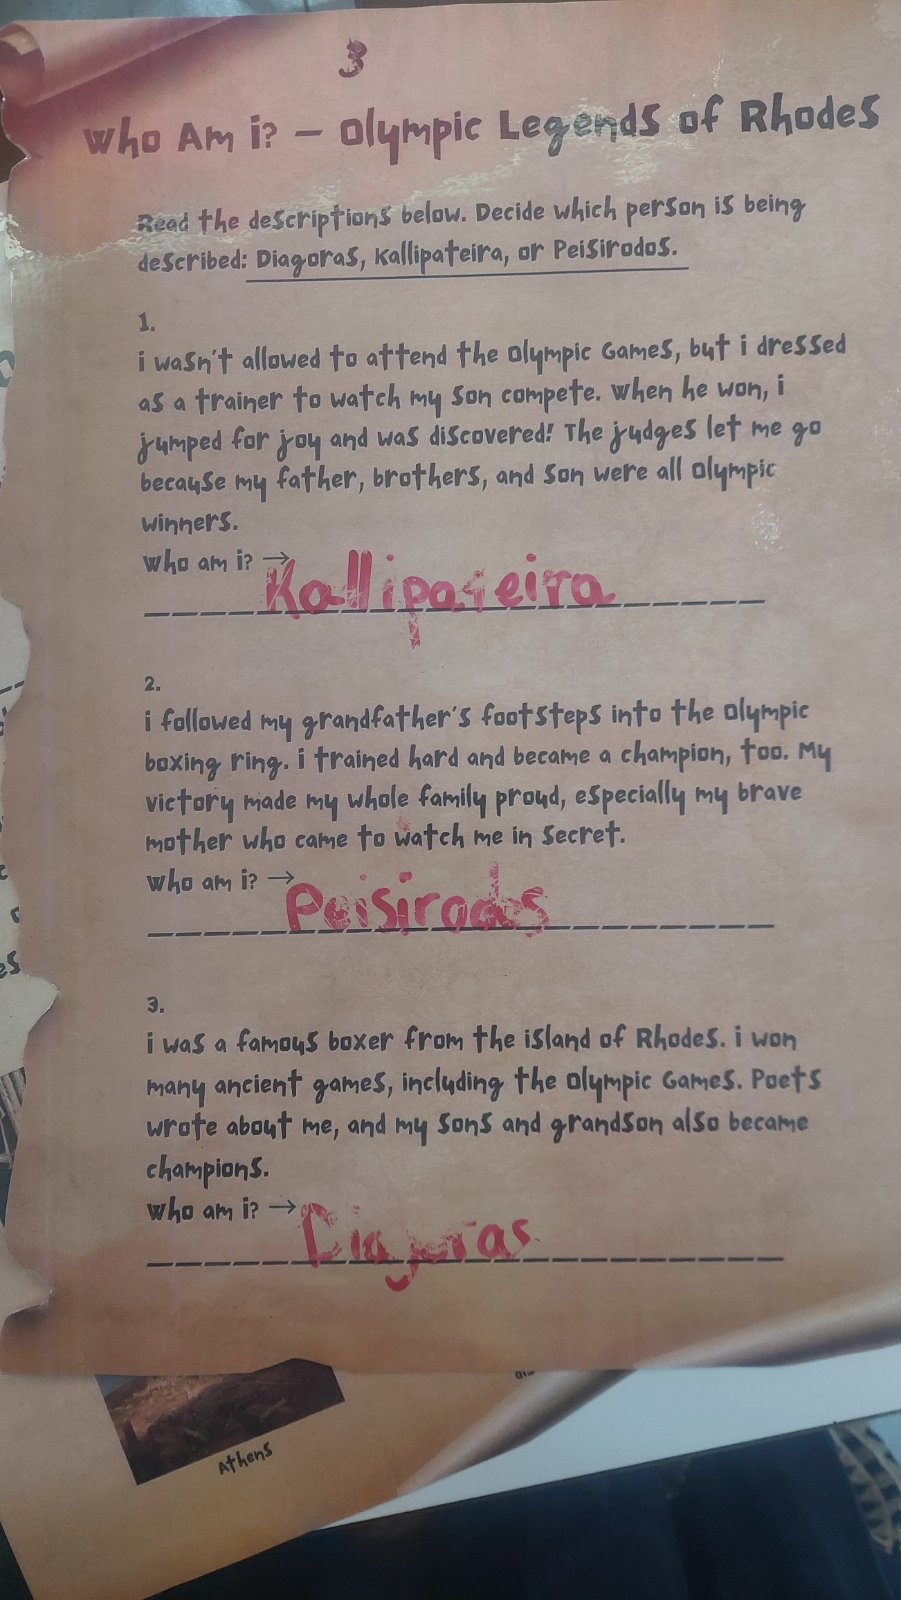 3
Who Am i? – Olympic Legends of Rhodes
Read the descriptions below. Decide which person is being
described: Diagoras, Kallipateira, or Peisirodos.
1.
i wasn't allowed to attend the Olympic Games, but i dressed
as a trainer to watch my son compete. When he won, i
jumped for joy and was discovered! The judges let me go
because my father, brothers, and son were all Olympic
winners.
Who am i? →
Kallipateira
2.
i followed my grandfather's footsteps into the Olympic
boxing ring. i trained hard and became a champion, too. My
victory made my whole family proud, especially my brave
mother who came to watch me in secret.
Who am i? →
Peisirodos
3.
i was a famous boxer from the island of Rhodes. i won
many ancient games, including the Olympic Games. Poets
wrote about me, and my sons and grandson also became
champions.
Who am i? →
Athens